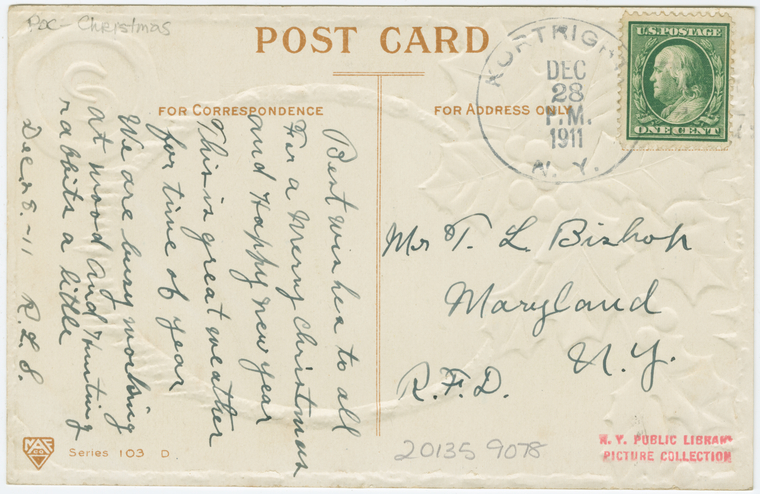 Pac - Christmas
POST CARD
FOR CORRESPONDENCE
FOR ADDRESS ONLY
Best wishes to all
For a Merry Christmas
and Happy new year
This is great weather
for time of year
We are busy working
at wood and Hunting
rabbits a little
Dec 28. -11 R. L. S.
DEC
28
P.M.
1911
N. Y.
U.S. POSTAGE
ONE CENT
Mr T. L. Bishop
Maryland
N. Y.
R. F. D.
Series 103 D.
20135 9078
N. Y. PUBLIC LIBRARY
PICTURE COLLECTION